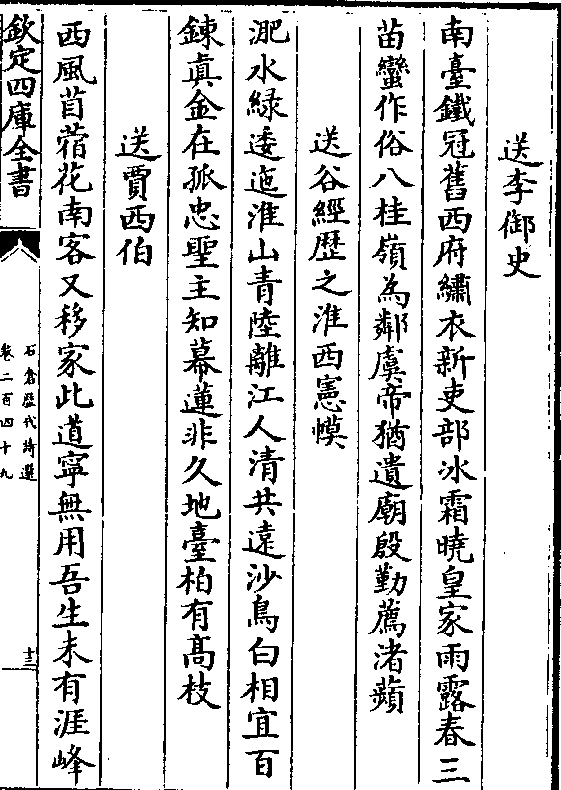 送李御史
南臺鐵冠舊西府繡衣新吏部冰霜曉皇家雨露春三
苗蠻作俗八桂嶺為鄰虞帝猶遺廟殷勤薦渚蘋
送谷經歴之淮西憲幙
淝水緑逶迤淮山青陸離江人清共逺沙鳥白相宜百
鍊真金在孤忠聖主知幕蓮非久地臺柏有髙枝
送賈西伯
西風苜蓿花南客又移家此道寧無用吾生未有涯峰
欽定四庫全書
石倉歴代詩選
卷二百四十九
十三